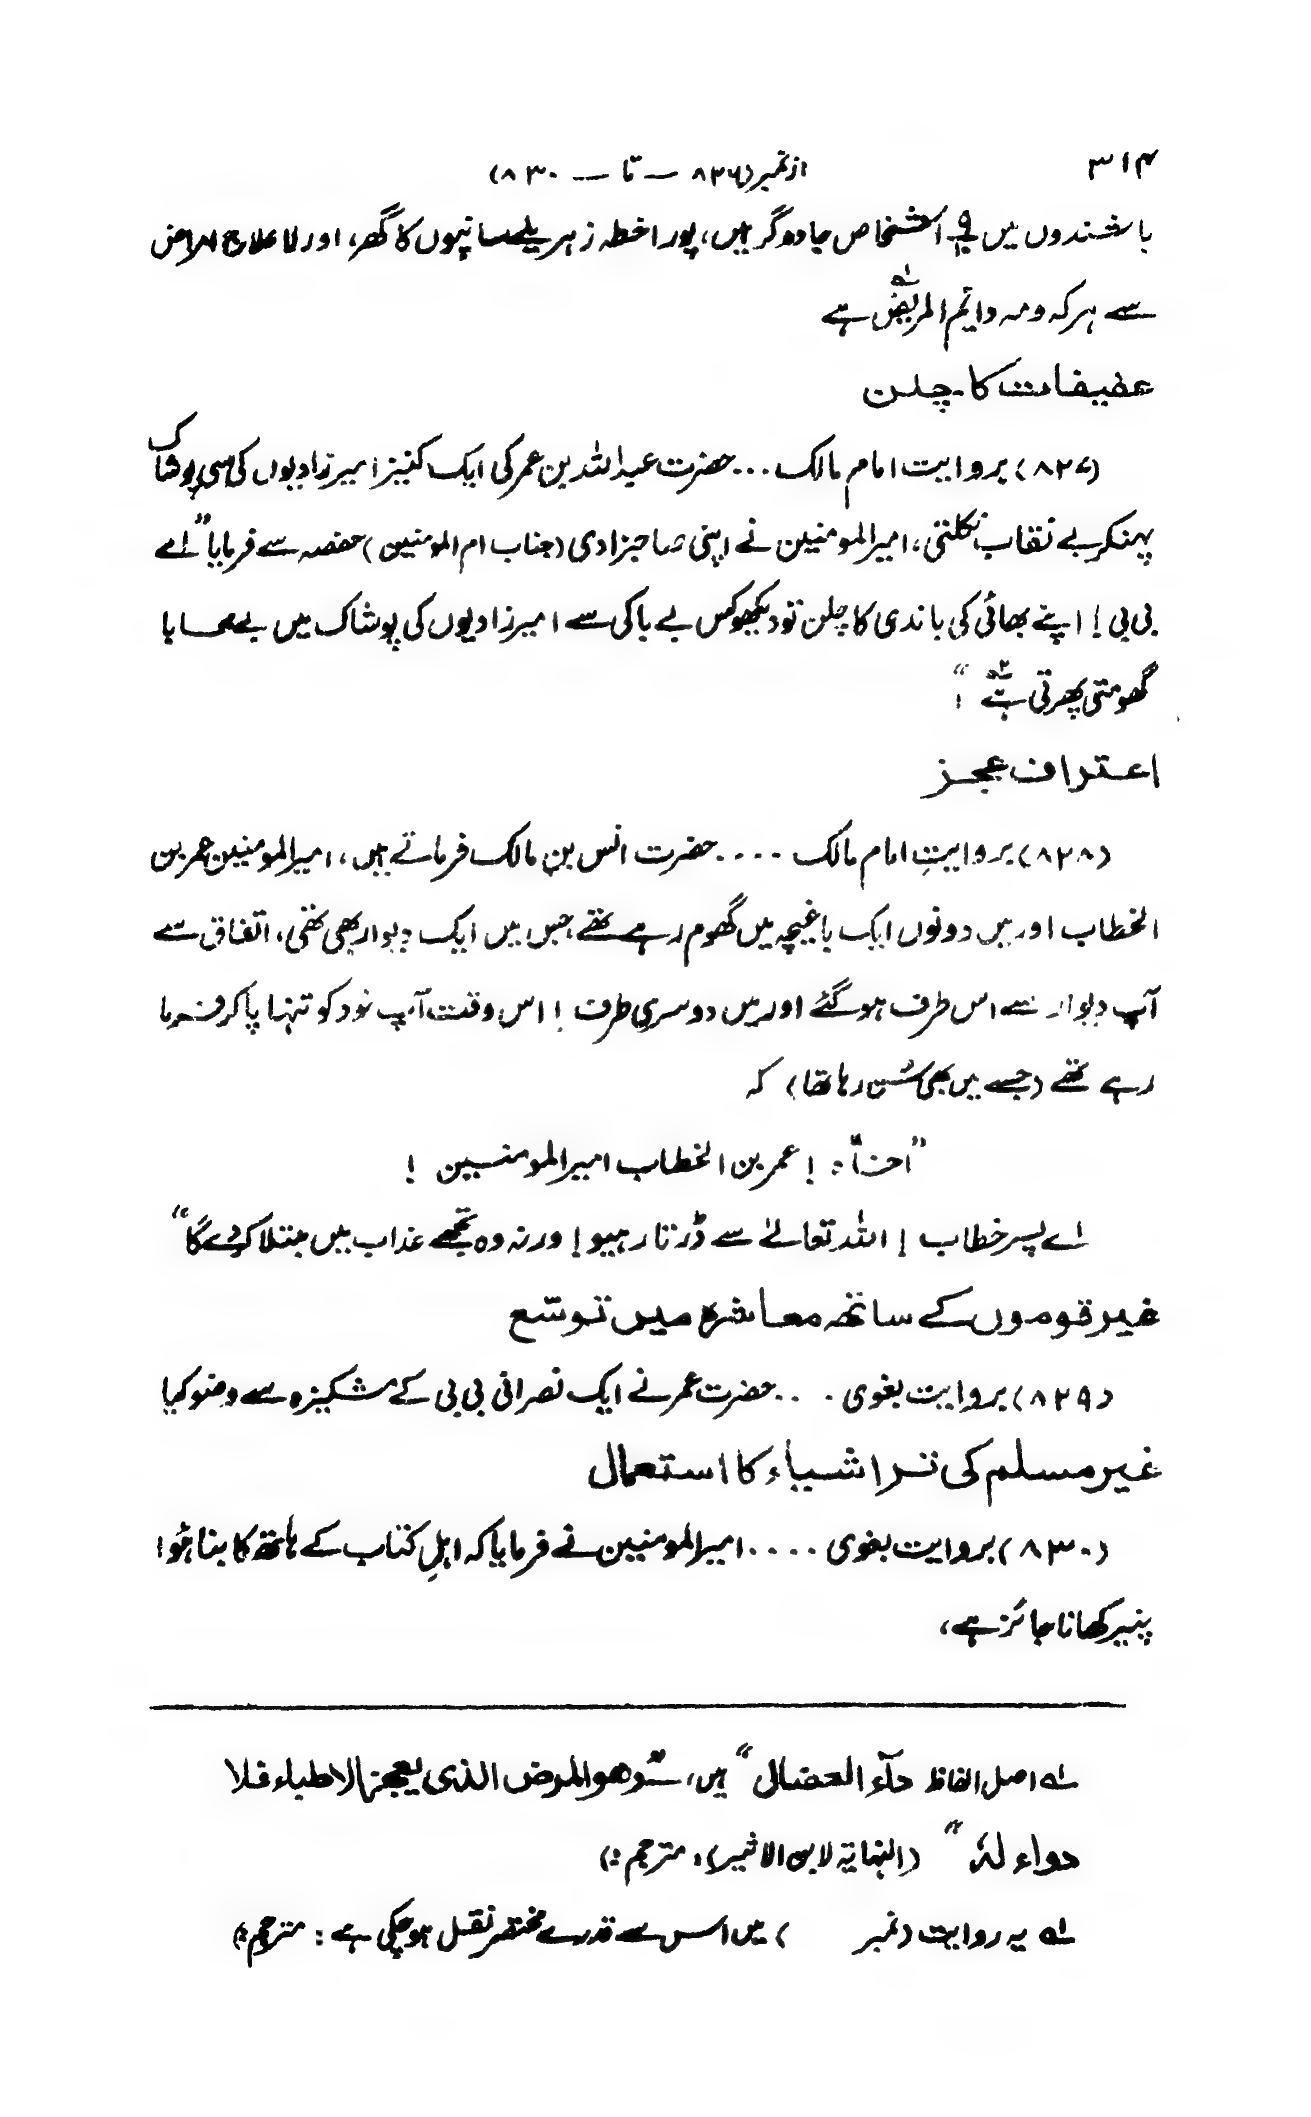 ۳۱۴
از نمبر (۸۲۶ — تا — ۸۳۰)
باشندوں میں ۹/۱۰ اشخاص جادوگر ہیں، پورا خطہ زہریلے سانپوں کا گھر، اور لاعلاج امراض
سے ہر کہ و مہ دایٔم المریض ہے
عفیفات کا چلن
(۸۲۷) بروایت امام مالک ... حضرت عبداللہ بن عمر کی ایک کنیز امیرزادیوں کی سی پوشاک
پہنکر بے نقاب نکلتی، امیرالمومنین نے اپنی صاحبزادی (جناب ام المومنین) حفصہ سے فرمایا ”اے
بی بی! اپنے بھائی کی باندی کا چلن تو دیکھو کس بے باکی سے امیرزادیوں کی پوشاک میں بے محابا
گھومتی پھرتی ہے“
اعتراف عجز
(۸۲۸) بروایتِ امام مالک .... حضرت انس بن مالک فرماتے ہیں، امیرالمومنین عمر بن
الخطاب اور میں دونوں ایک باغیچہ میں گھوم رہے تھے جس میں ایک دیوار بھی تھی، اتفاق سے
آپ دیوار سے اس طرف ہو گئے اور میں دوسری طرف ! اس وقت آپ خود کو تنہا پا کر فرما
رہے تھے (جسے میں بھی سُن رہا تھا) کہ
! عمر بن الخطاب امیرالمومنین !
اے پسر خطاب ! اللہ تعالےٰ سے ڈرتا رہیو! ورنہ وہ تجھے عذاب میں مبتلا کر دے گا“
غیر قوموں کے ساتھ معاشرہ میں توسّع
(۸۲۹) بروایت بغوی ... حضرت عمر نے ایک نصرانی بی بی کے مشکیزہ سے وضو کیا
غیر مسلم کی تر اشیاء کا استعمال
(۸۳۰) بروایت بغوی .... امیرالمومنین نے فرمایا کہ اہلِ کتاب کے ہاتھ کا بنا ہُوا
پنیر کھانا جائز ہے،
لہ اصل الفاظ داٰء العضال“ ہیں، وھو المرض الذی یعجز الاطباء فلا
دواء لہٗ“ (النہایۃ لابن الاثیر)، مترجم:)
لہ یہ روایت (نمبر ) میں اس سے قدرے مختصر نقل ہو چکی ہے : مترجم:)